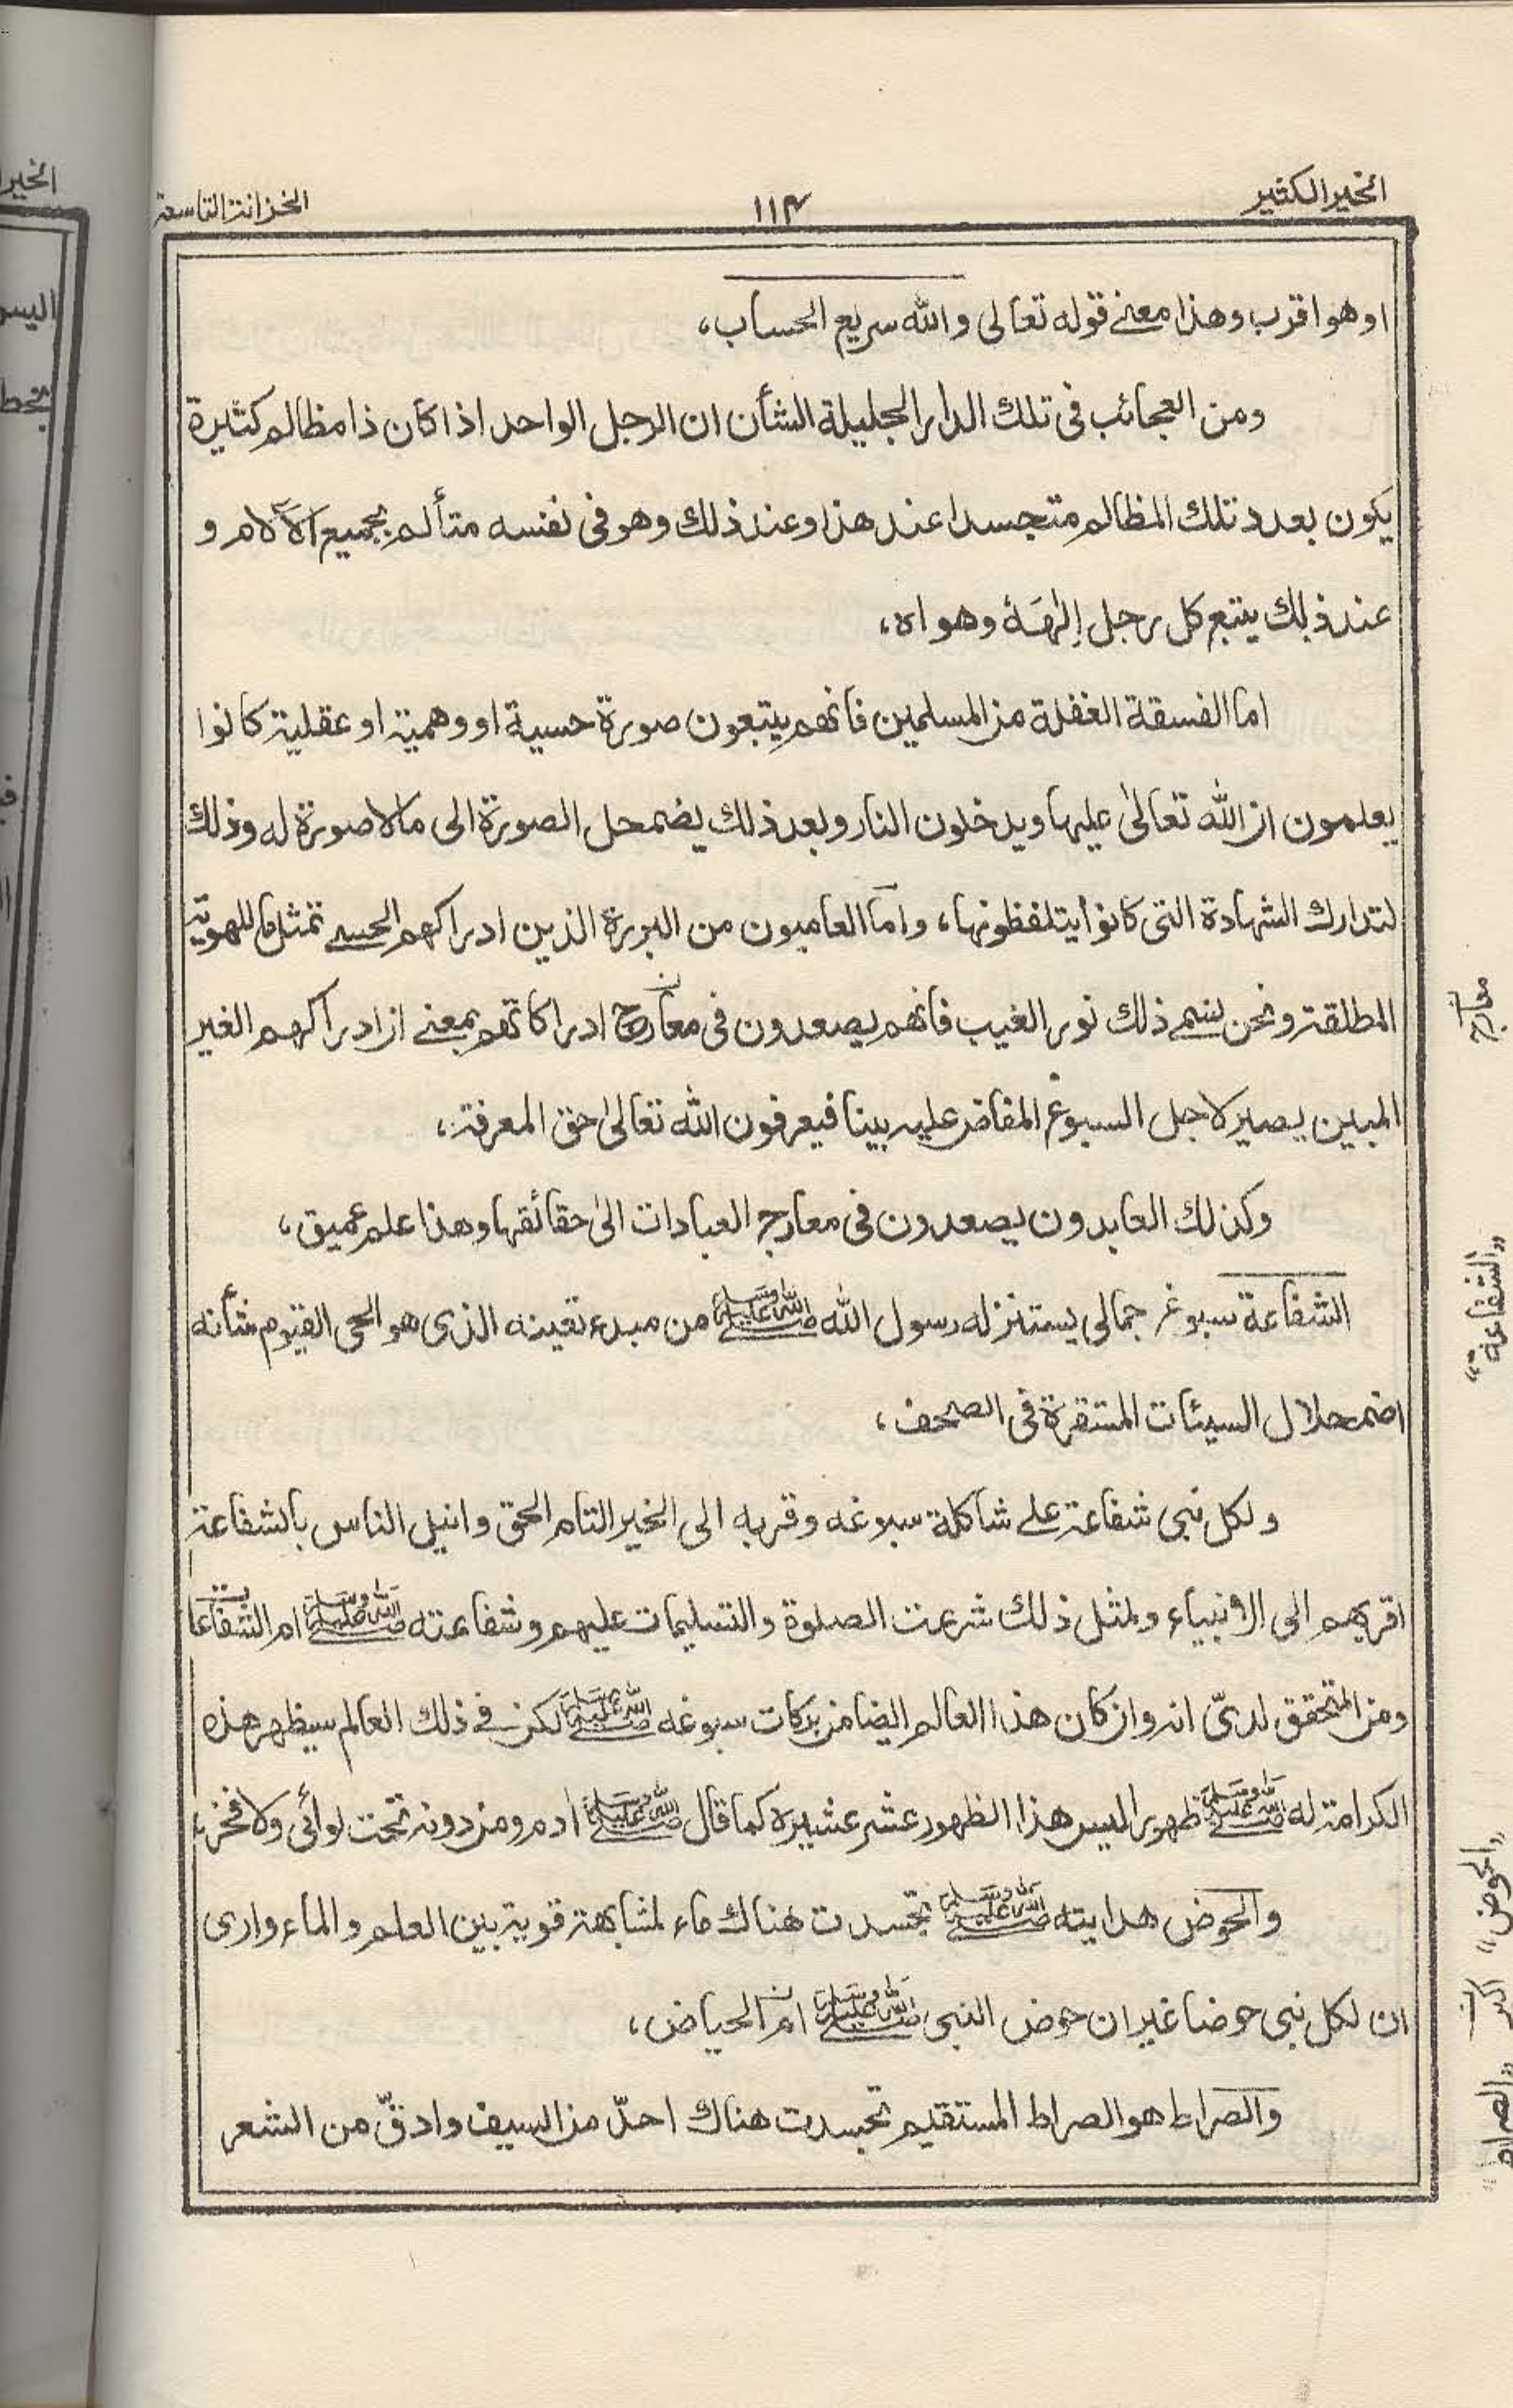 الخير الكثير
١١٣
الخزانة التاسعة
او هو اقرب وهذا معنے قوله تعالى والله سريع الحساب،
ومن العجائب فى تلك الدار الجليلة الشأن ان الرجل الواحد اذا كان ذا مظالم كثيرة
يكون بعدد تلك المظالم متجسدا عند هذا وعند ذلك وهو فى نفسه متألم بجميع الآلام و
عند ذلك يتبع كل رجل إلٰهَهٗ وهواه،
اما الفسقة الغفلة من المسلمين فانهم يتبعون صورة حسية او وهمية او عقلية كانوا
يعلمون ان الله تعالىٰ عليها ويدخلون النار وبعد ذلك يضمحل الصورة الى مالا صورة له وذلك
لتدارك الشهادة التى كانوا يتلفظونها، واما العاميون من البررة الذين ادراكهم الحسے تمثل ما للهوية
المطلقة ونحن نسمے ذلك نور الغيب فانهم يصعدون فى معارج ادراكاتهم بمعنے ان ادراكهم الغير
المبين يصير لاجل السبوغ المفاض عليه بينا فيعرفون الله تعالىٰ حق المعرفة،
وكذلك العابدون يصعدون فى معارج العبادات الىٰ حقائقها وهذا علم عميق،
الشفاعة سبوغ جمالى يستنزله رسول الله ﷺ من مبدء تعينه الذى هو الحى القيوم شأنه
اضمحلال السيئات المتقررة فى الصحف،
ولكل نبى شفاعة علے شاكلة سبوغه وقربه الى الخير التام الحق وانيل الناس بالشفاعة
اقربهم الى الانبياء ولمثل ذلك شرعت الصلوة والتسليمات عليهم وشفاعته ﷺ ام الشفاعات
ومن المتحقق لدىّ انه وان كان هذا العالم ايضا من بركات سبوغه ﷺ لكن فے ذلك العالم سيظهر هذه
الكرامة له ﷺ ظهورا ليس هذا الظهور عشر عشيره كما قال ﷺ ادم ومن دونه تحت لوائى ولا فخر،
والحوض هدايته ﷺ تجسدت هناك ماء لمشابهة قوية بين العلم والماء وارى
ان لكل نبى حوضا غير ان حوض النبى ﷺ ام الحياض،
والصراط هو الصراط المستقيم تجسدت هناك احدّ من السيف وادقّ من الشعر
معارج
”الشفاعة“
”الحوض“
”الصراط“